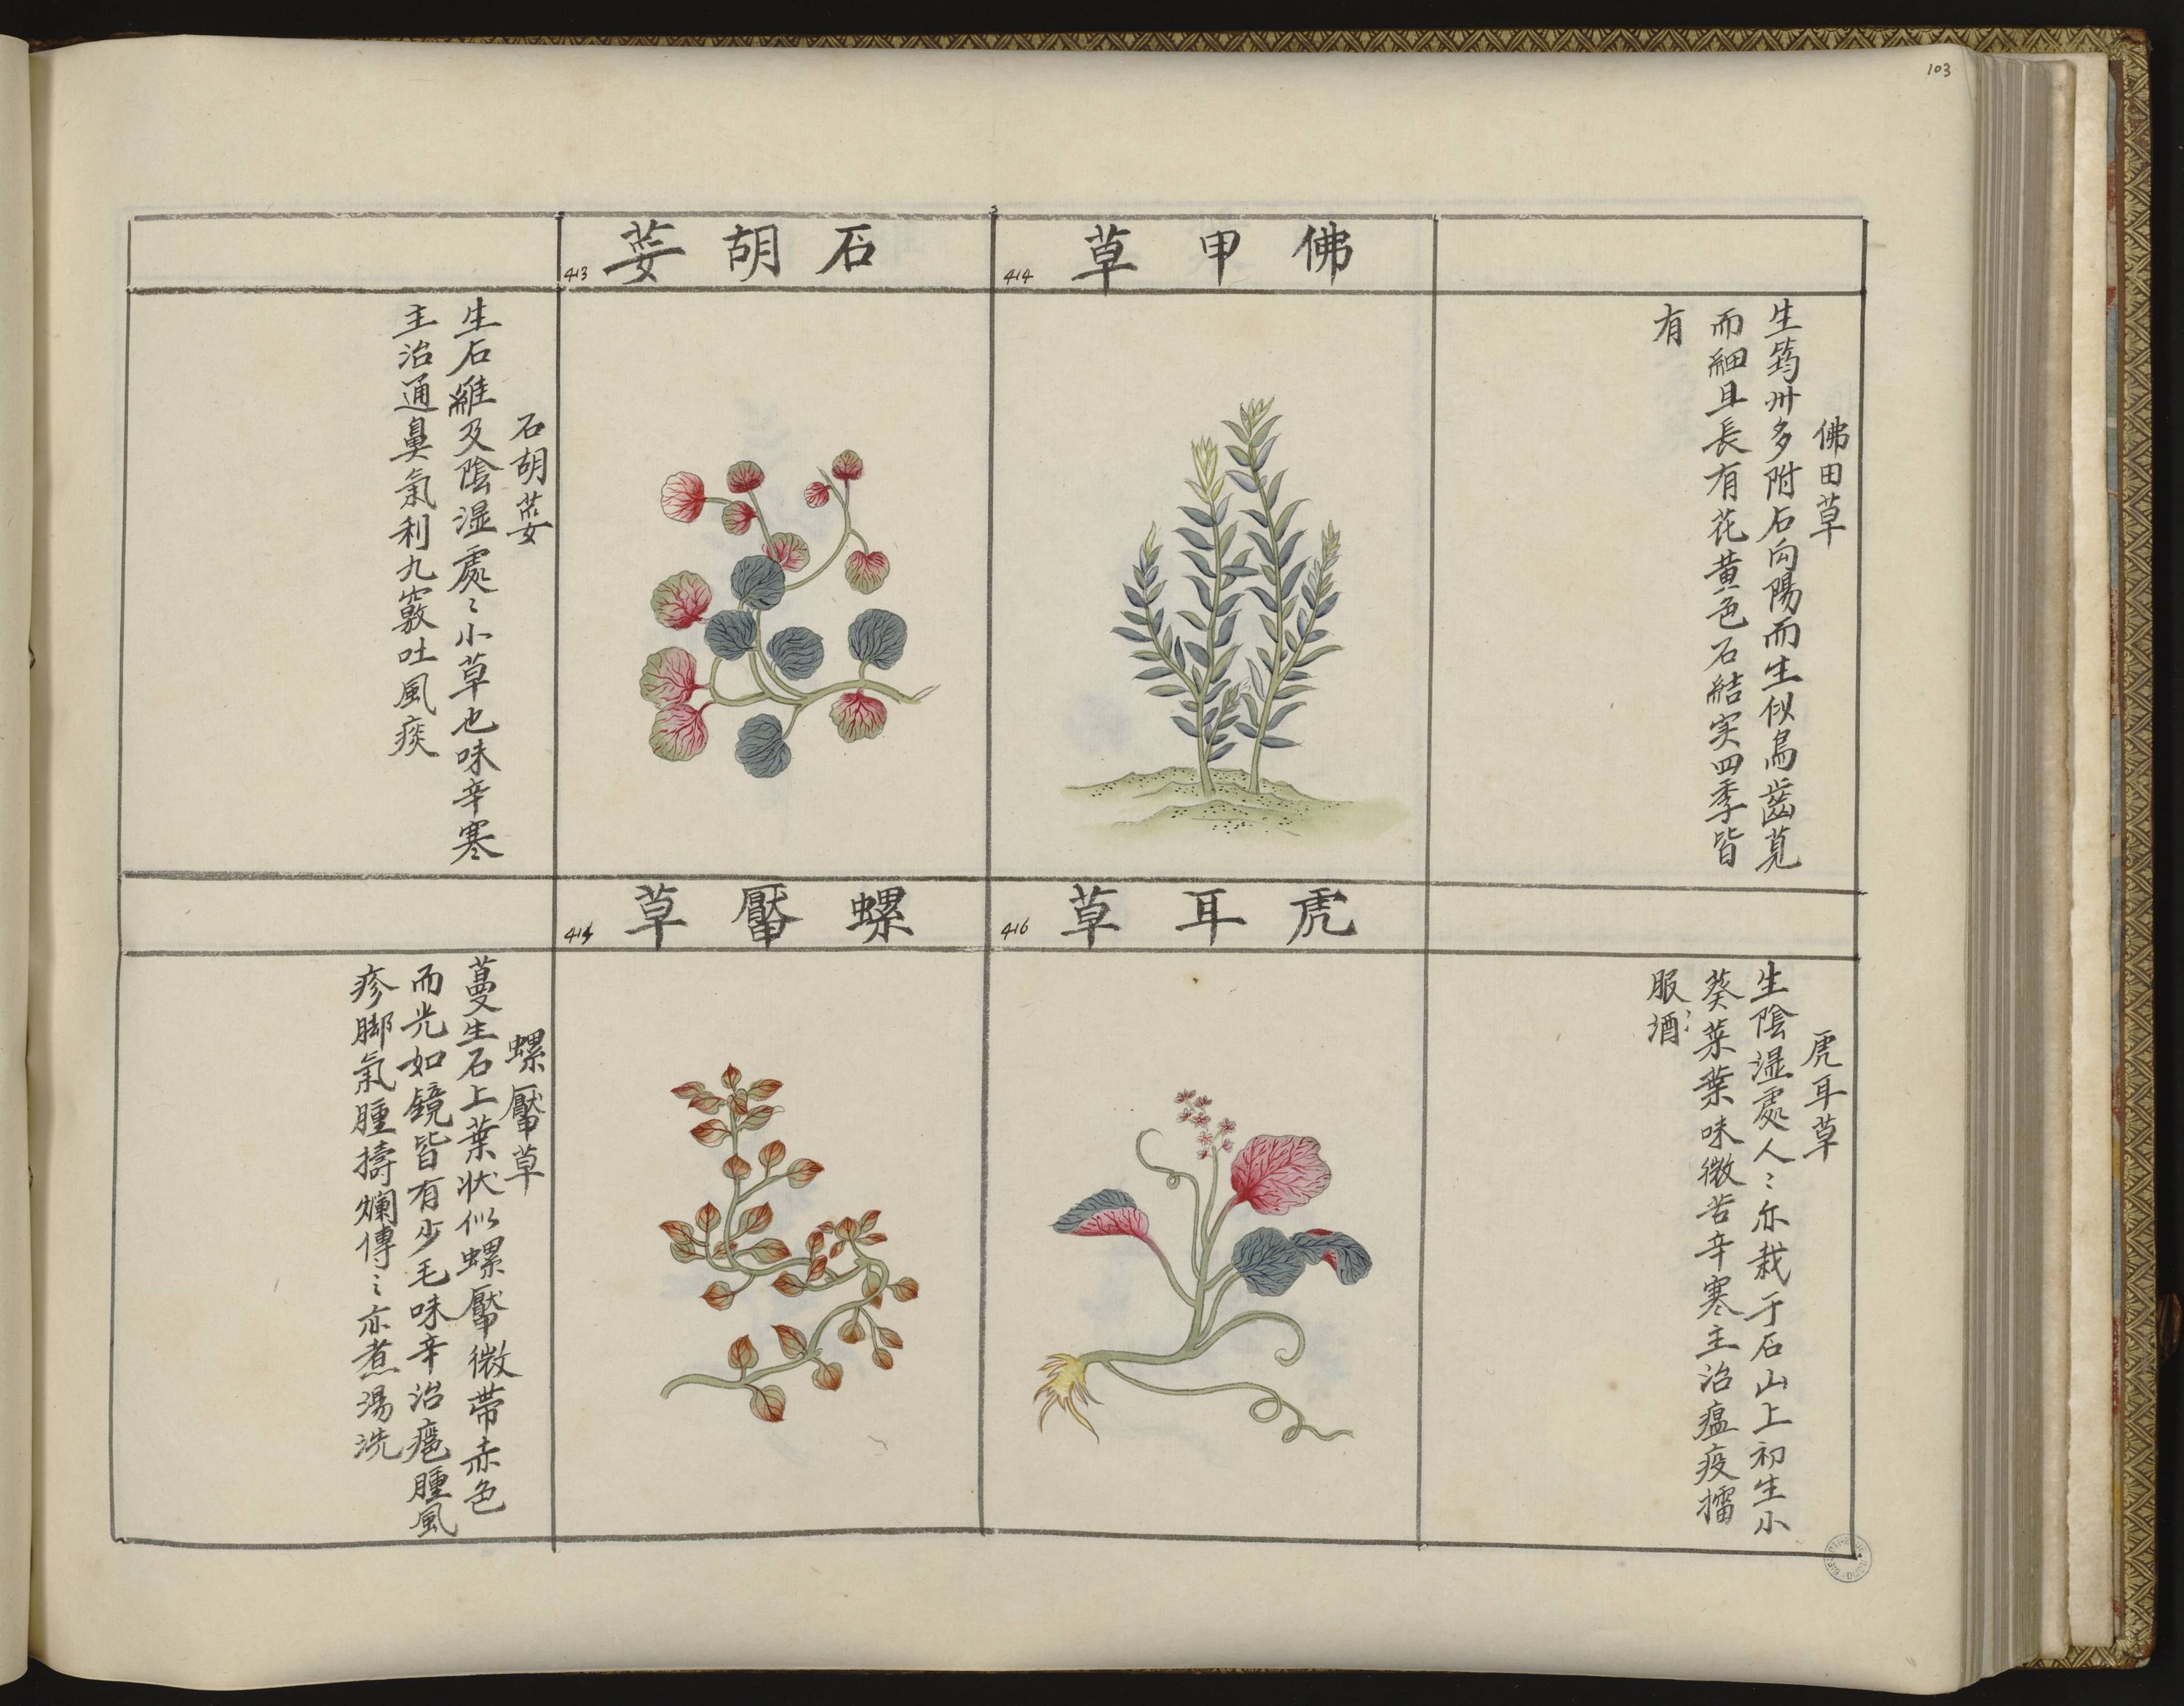 103
佛甲草
414
佛田草
生筠州多附石向陽而生似馬齒莧
而細且長有花黃色石結实四季皆
有
石胡荽
413
石胡荽
生石縫及陰湿處〻小草也味辛寒
主治通鼻氣利九竅吐風痰
虎耳草
416
虎耳草
生陰湿處人〻亦栽于石山上初生小
葵菜葉味微苦辛寒主治瘟疫擂
服酒〻
螺厴草
螺厴草
蔓生石上葉状似螺厴微带赤色
而光如鏡皆有少毛味辛治瘡腫風
疹脚氣腫擣爛傅〻亦煮湯洗